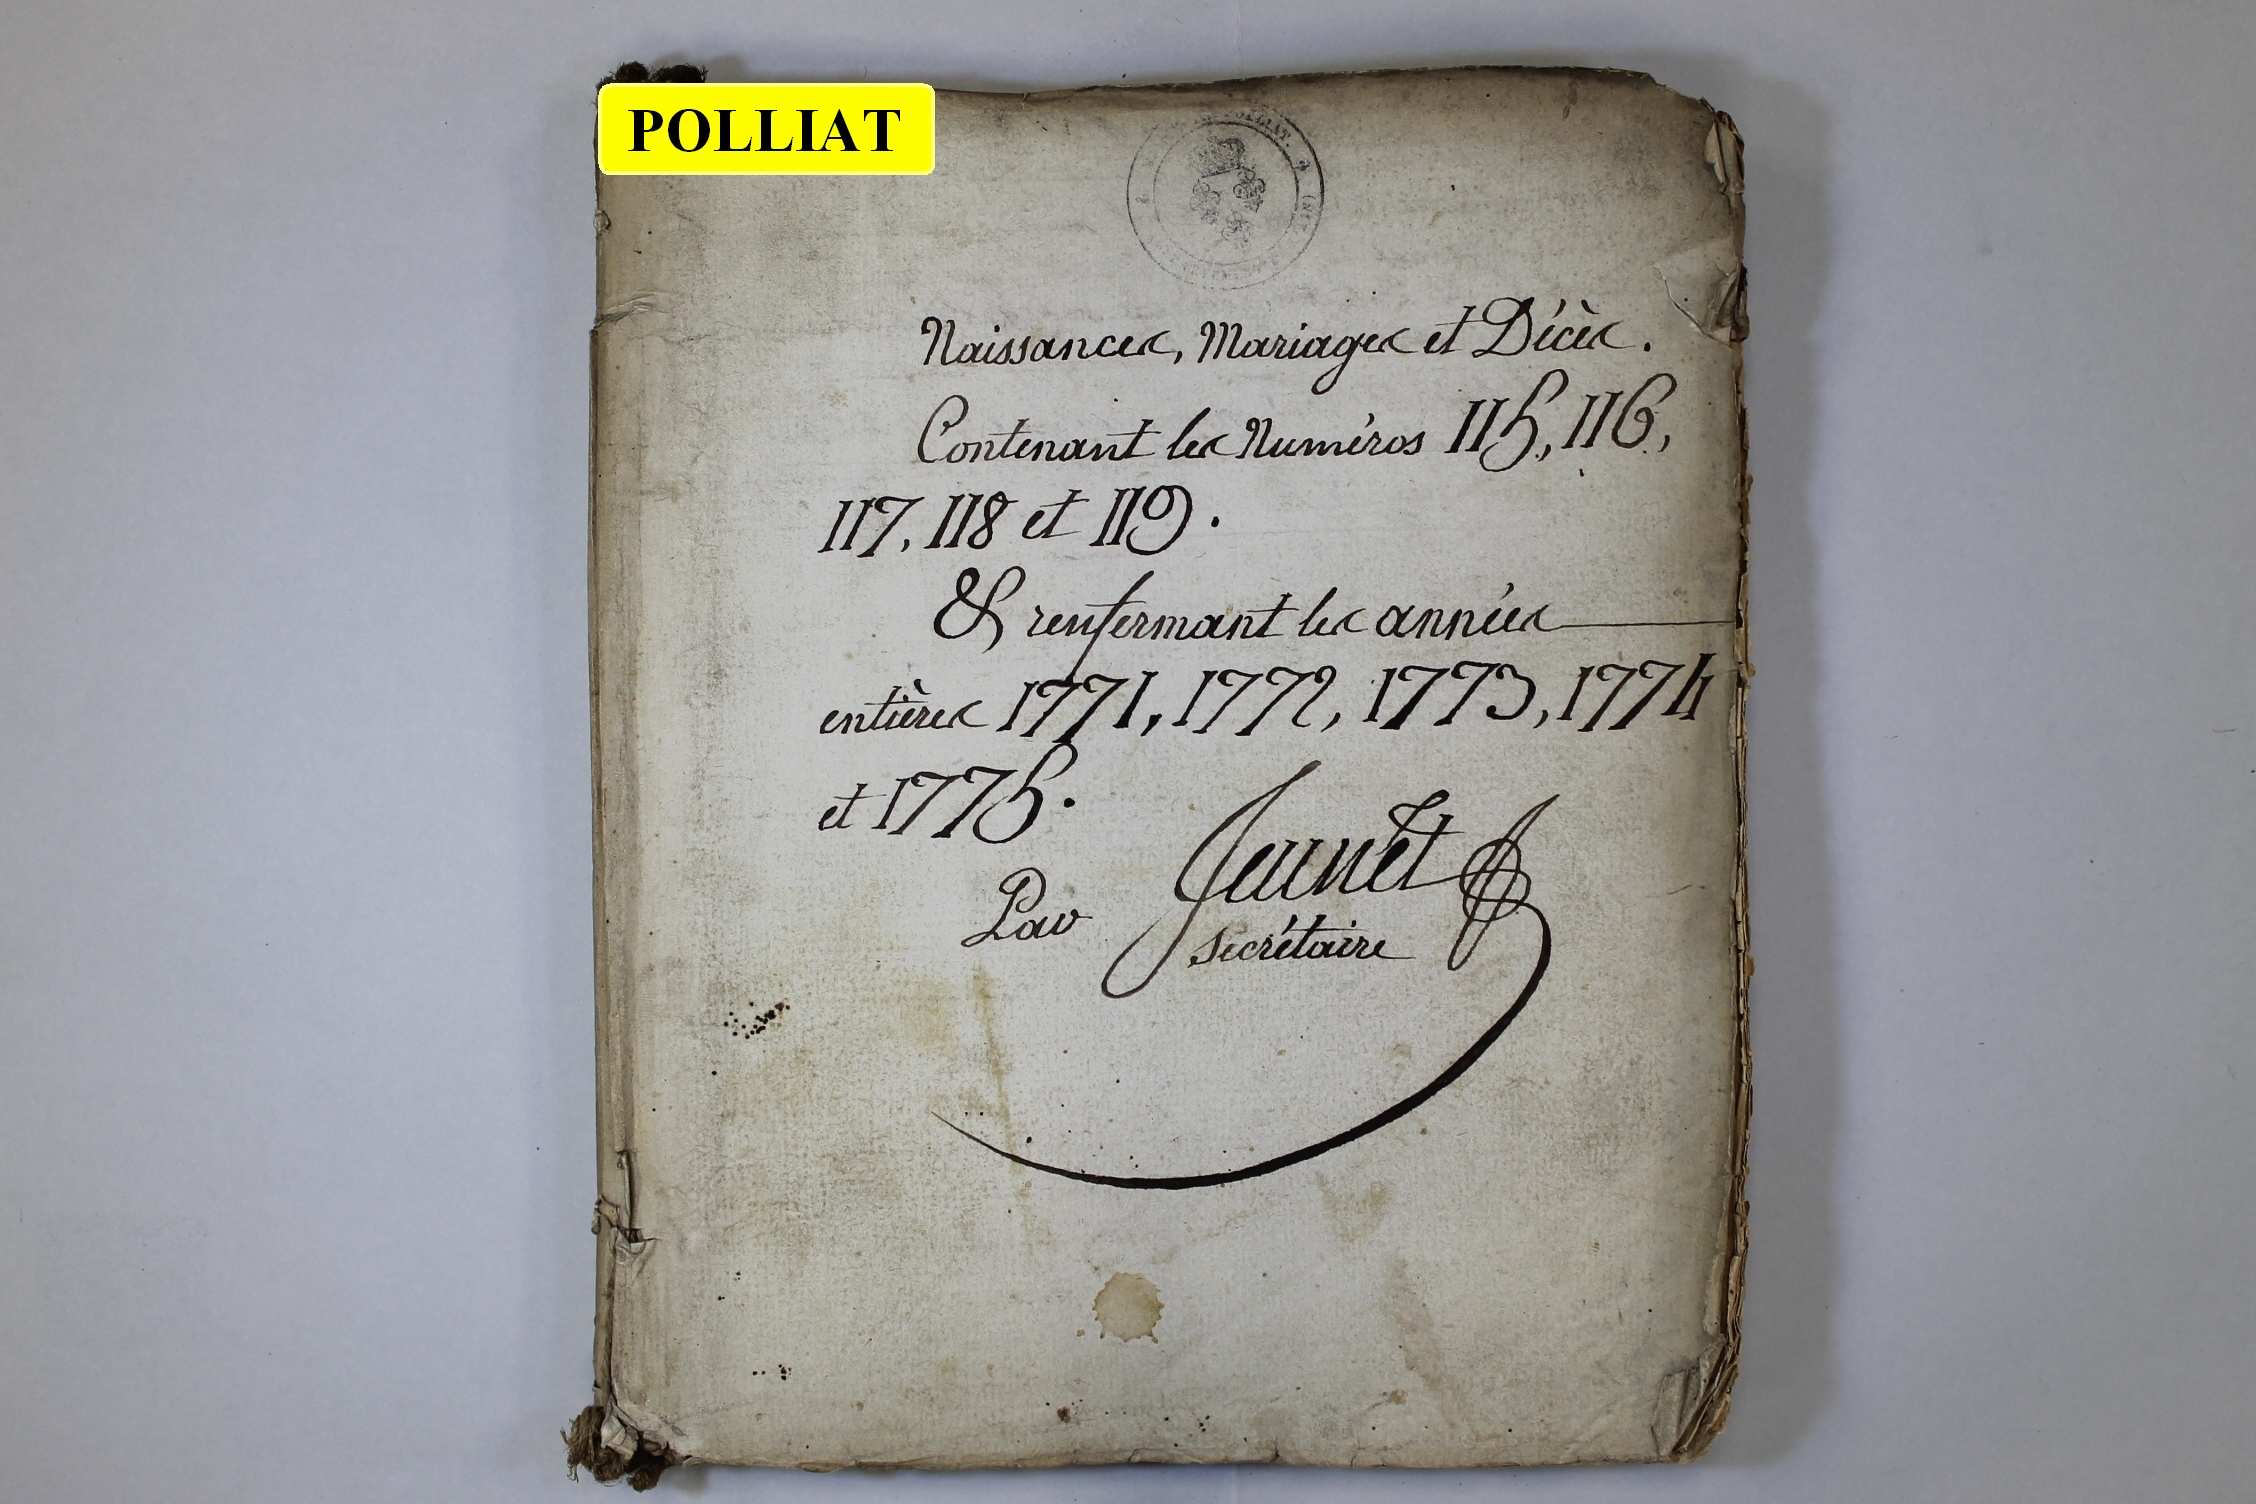 POLLIAT
POLLIAT.
Naissances, Mariages et Décès.
Contenant les Numéros 115, 116,
117, 118 et 119.
& renfermant les années
entières 1771, 1772, 1773, 1774
et 1775.
Par Jeunet
secrétaire